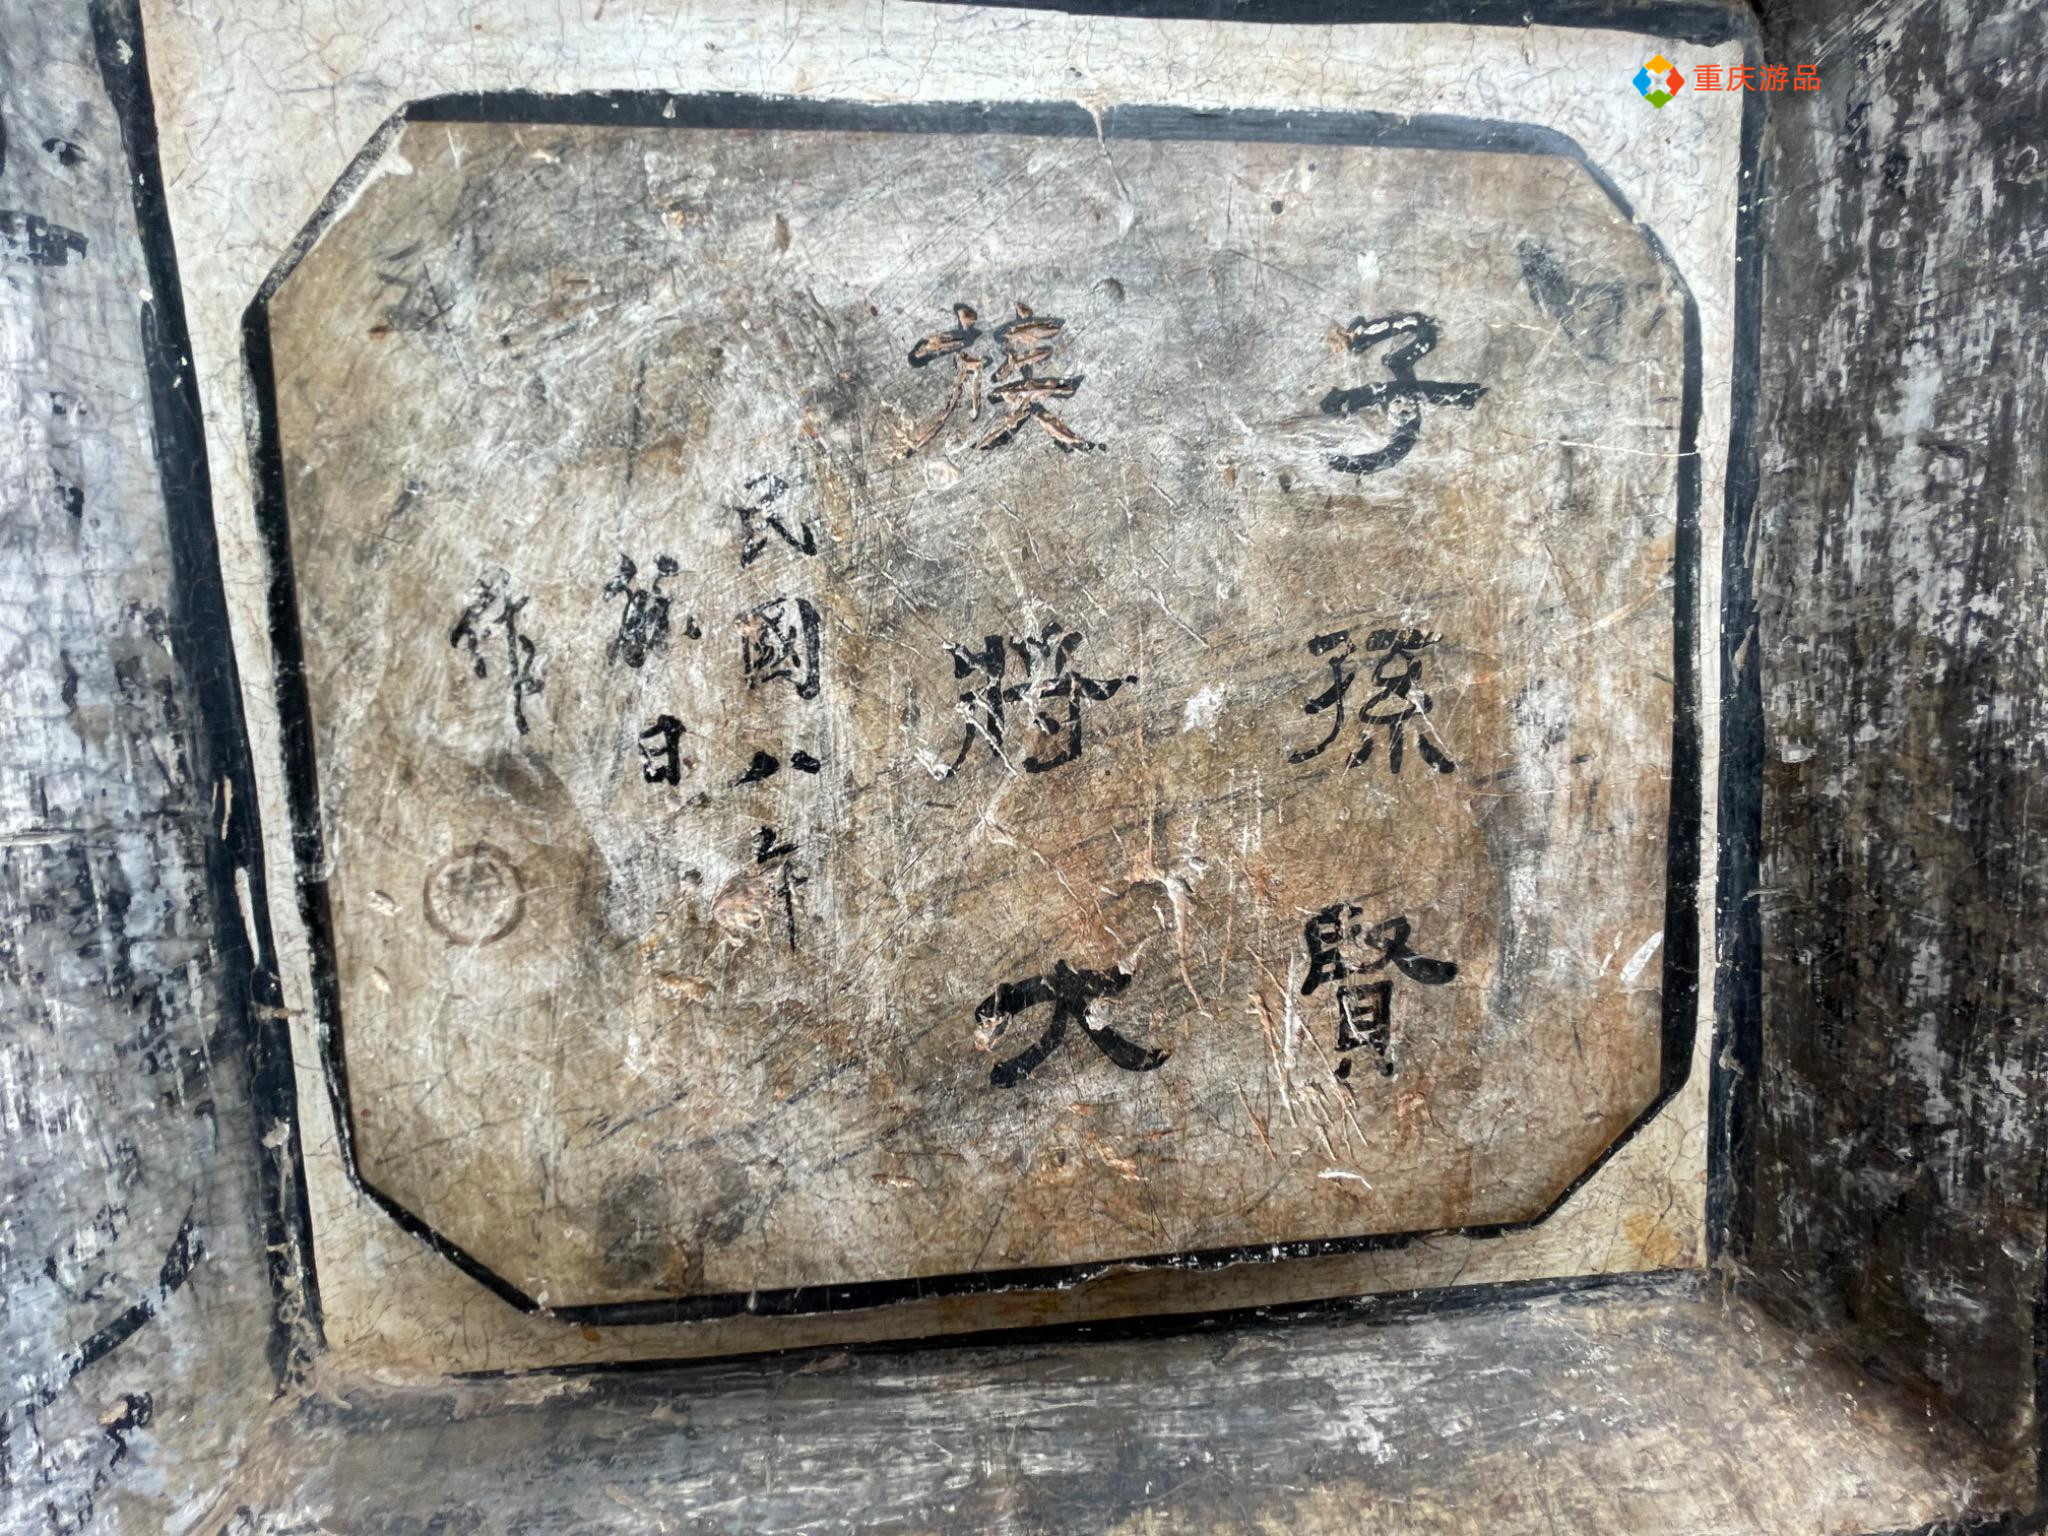 子孫賢
族將大
民國八年
日
作
重庆游品